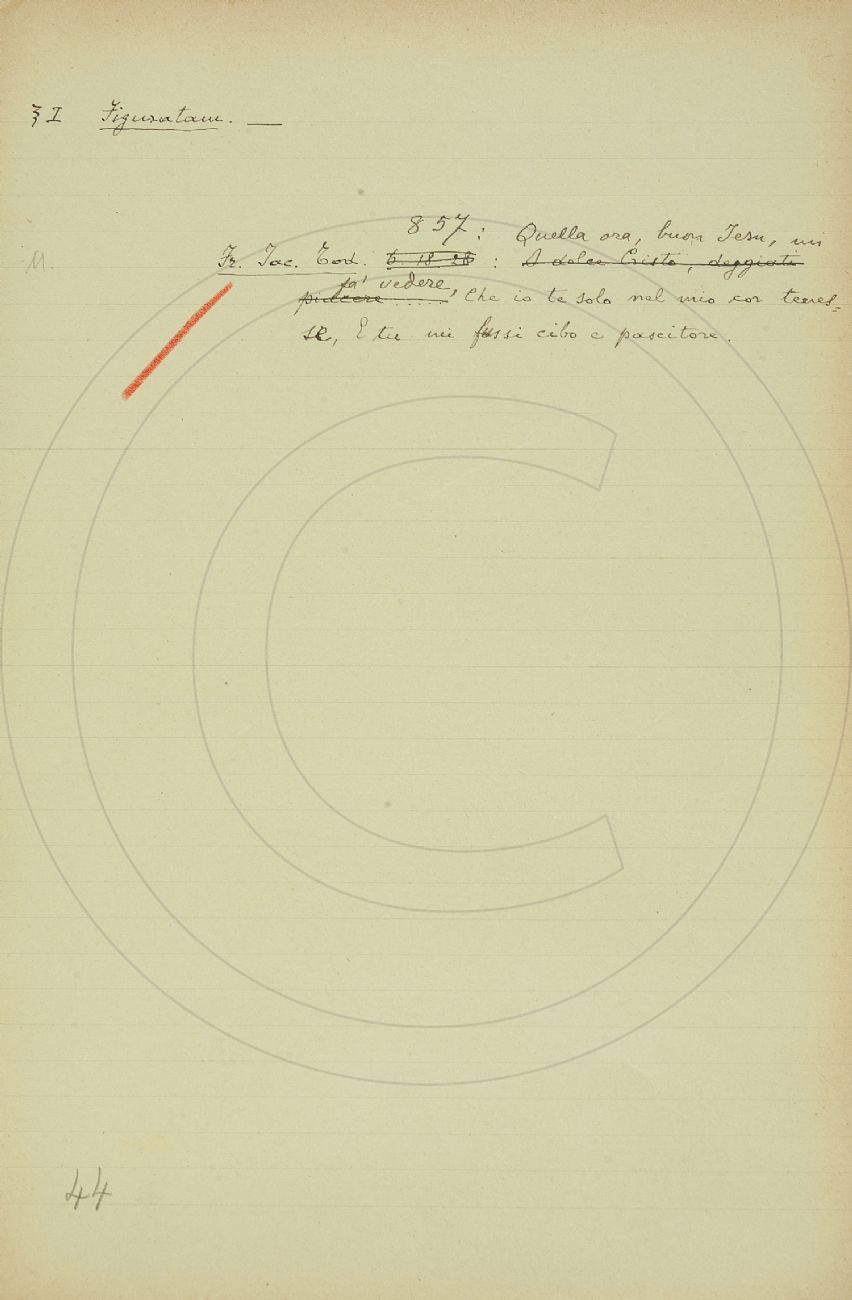 § I Figuratam. —
857: Quella ora, buon Iesu, mi
M. Fr. Iac. Tod. 6. 18. 28 : A dolce Cristo, deggiati
fa' vedere,
piacere ...... Che io te solo nel mio cor tenes-
se, E tu mi fussi cibo e pascitore.
44